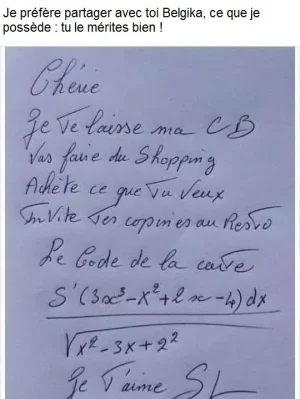 Je préfère partager avec toi Belgika, ce que je
possède : tu le mérites bien !
Chérie
Je Te laisse ma CB
Vas faire du Shopping
Achète ce que Tu Veux
Invite Tes copines au Resto
Le Code de la carte
S'(3x³-x²+2x-4)dx
√x²-3x+2²
Je T'aime SL